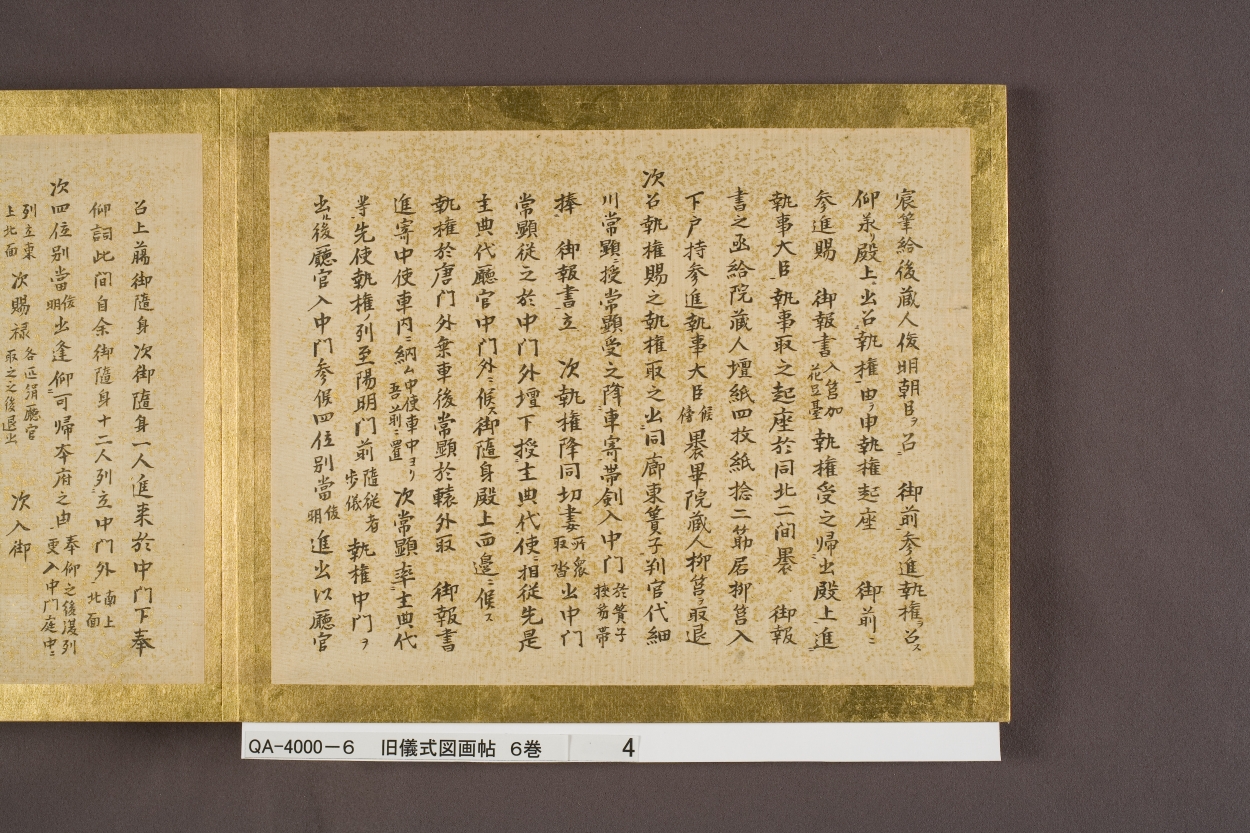 宸筆給後蔵人俊明朝臣ヲ召ニ 御前参進執権ヲ召ス
仰承リ殿上ニ出召執権ニ由ヲ申執権起座 御前ニ
参進賜 御報書入筥加花足臺執権受之帰出殿上進
執事大臣執事取之起座於同北二間畧 御報
書之函給院蔵人壇紙四枚紙捻二筋居柳筥入
下戸持参進執事大臣候傍畧畢院蔵人柳筥ヲ取退
次召執権賜之執権取之出同廊東簀子判官代細
川常顕ニ授常顕受之降車寄帯剣入中門於簀子授笏帯
捧 御報書立 次執権降同切妻所衆取沓出中門
常顕従之於中門外壇下授主典代使相従先是
主典代廳官中門外ニ候ス御随身殿上西邊ニ候ス
執権於唐門外乗車後常顕於轅外取 御報書
進寄中使車内ニ納ム中使車中ヨリ吾前ニ置 次常顕率主典代
等先使執権ノ列至陽明門前随従者歩儀執権中門ヲ
出ル後廳官入中門参候四位別當俊明進出以廳官
召上﨟御随身次御随身一人進来於中門下奉
仰詞此間自余御随身十二人列立中門外南上北面
次四位別當俊明出逢仰可帰本府之由奉仰之後湯列更入中門庭中ニ
列立東上北面 次賜禄各疋絹廳官取之之後退出 次入御
QA-4000-6 旧儀式図画帖 6巻 4